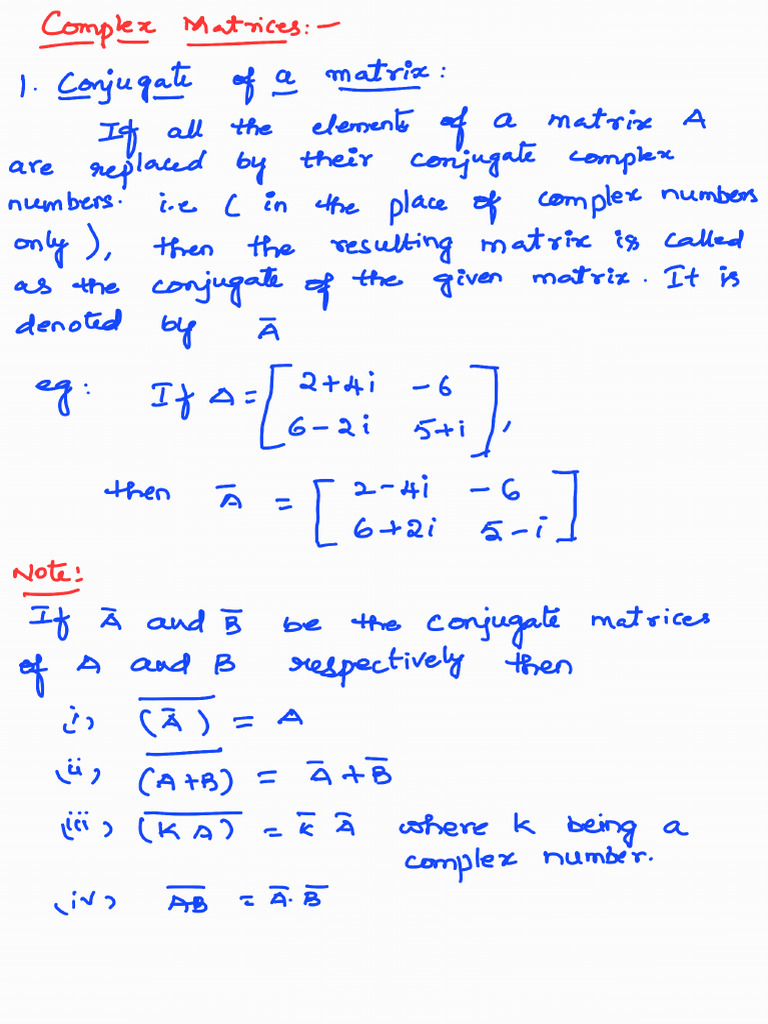 Complex Matrices:-
1. Conjugate of a matrix:
If all the elements of a matrix A
are replaced by their conjugate complex
numbers. i.e ( in the place of complex numbers
only ), then the resulting matrix is called
as the conjugate of the given matrix. It is
denoted by Ā
eg: If A = [ 2+4i  -6
6-2i  5+i ],
then Ā = [ 2-4i  -6
6+2i  5-i ]
Note:
If Ā and B̄ be the conjugate matrices
of A and B respectively then
(i) \overline{(Ā)} = A
(ii) \overline{(A+B)} = Ā + B̄
(iii) \overline{(KA)} = K̄ Ā where K being a
complex number.
(iv) \overline{AB} = Ā. B̄